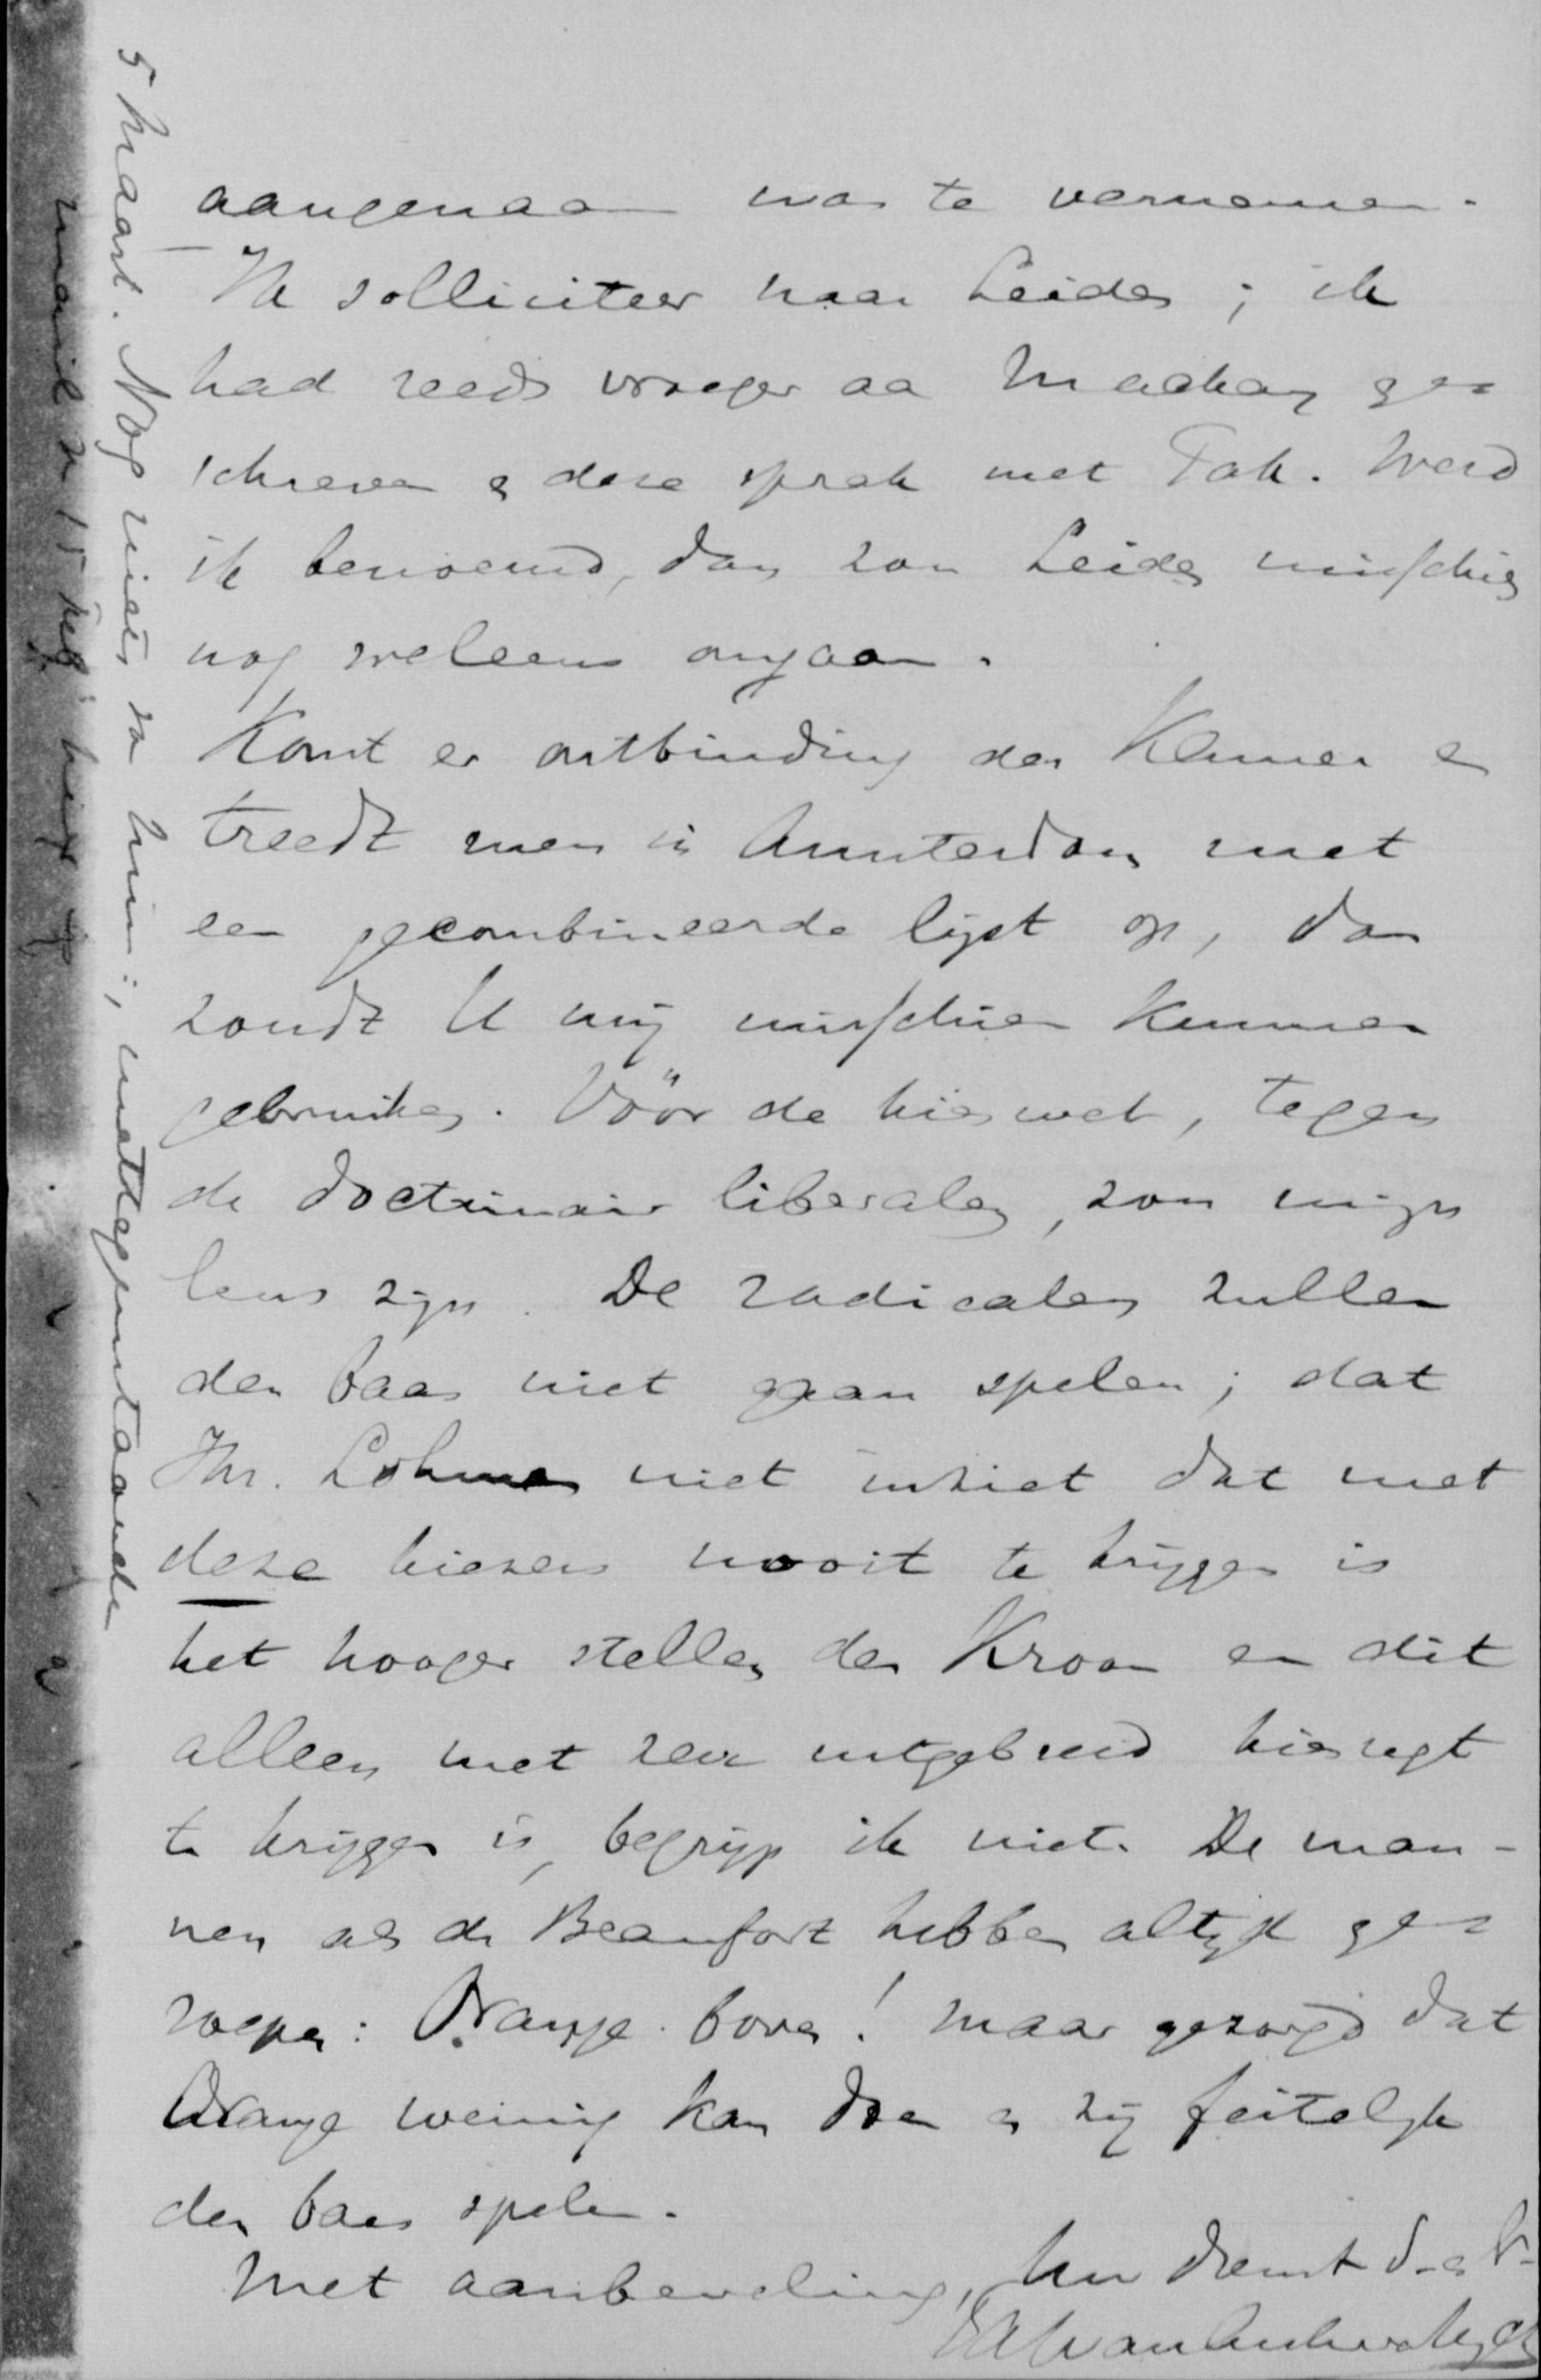 aangenaam was te vernemen.
Ik solliciteer naar Leiden; ik
had reeds vroeger aa Mackay ge=
schreven & deze sprak met Tak. Werd
ik benoemd, dan zou Leiden misschien
nog weleens omgaan.
Komt er ontbinding der Kamer en
treedt men in Amsterdam met
een gecombineerde lijst op, dan
zoudt U mij misschien kunnen
gebruiken. Vóór de kieswet, tegen
de doctrinair liberalen, zou mijn
leus zijn. De radicalen zullen
den baas niet gaan spelen; dat
Jhr. Lohman niet inziet dat met
deze kiezers nooit te krijgen is
het hooger stellen der Kroon en dit
alleen met zeer uitgebreid kiesregt
te krijgen is, begrijp ik niet. De man-
nen als de Beaufort hebben altijd ge=
roepen: Oranje boven! maar gezorgd dat
Oranje weinig kan doen en zij feitelijk
den baas spelen.
Met aanbeveling, Uw dienst
5 Maart. Nog niets van hem; niettegenstaande